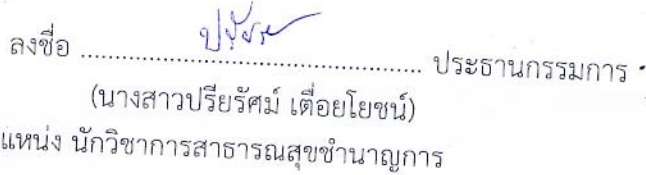 ลงชื่อ ................................................ ประธานกรรมการ
(นางสาวปรียรัศม์ เตื่อยโยชน์)
แหน่ง นักวิชาการสาธารณสุขชำนาญการ